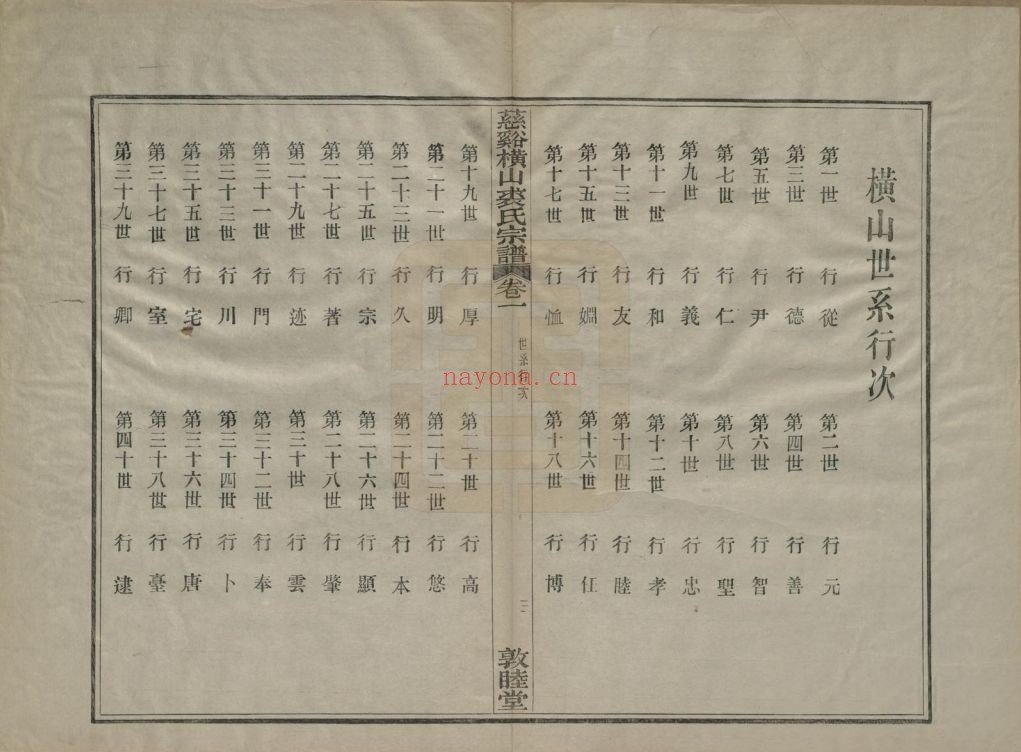 橫山世系行次
第一世 行從 第二世 行元
第三世 行德 第四世 行善
第五世 行尹 第六世 行智
第七世 行仁 第八世 行聖
第九世 行義 第十世 行忠
第十一世 行和 第十二世 行孝
第十三世 行友 第十四世 行睦
第十五世 行婣 第十六世 行任
第十七世 行恤 第十八世 行博
慈谿橫山裘氏宗譜 卷一 世系行次 三 敦睦堂
第十九世 行厚 第二十世 行高
第二十一世 行明 第二十二世 行悠
第二十三世 行久 第二十四世 行本
第二十五世 行宗 第二十六世 行顯
第二十七世 行著 第二十八世 行肇
第二十九世 行迹 第三十世 行雲
第三十一世 行門 第三十二世 行奉
第三十三世 行川 第三十四世 行卜
第三十五世 行宅 第三十六世 行唐
第三十七世 行室 第三十八世 行臺
第三十九世 行卿 第四十世 行逮
nayona.cn